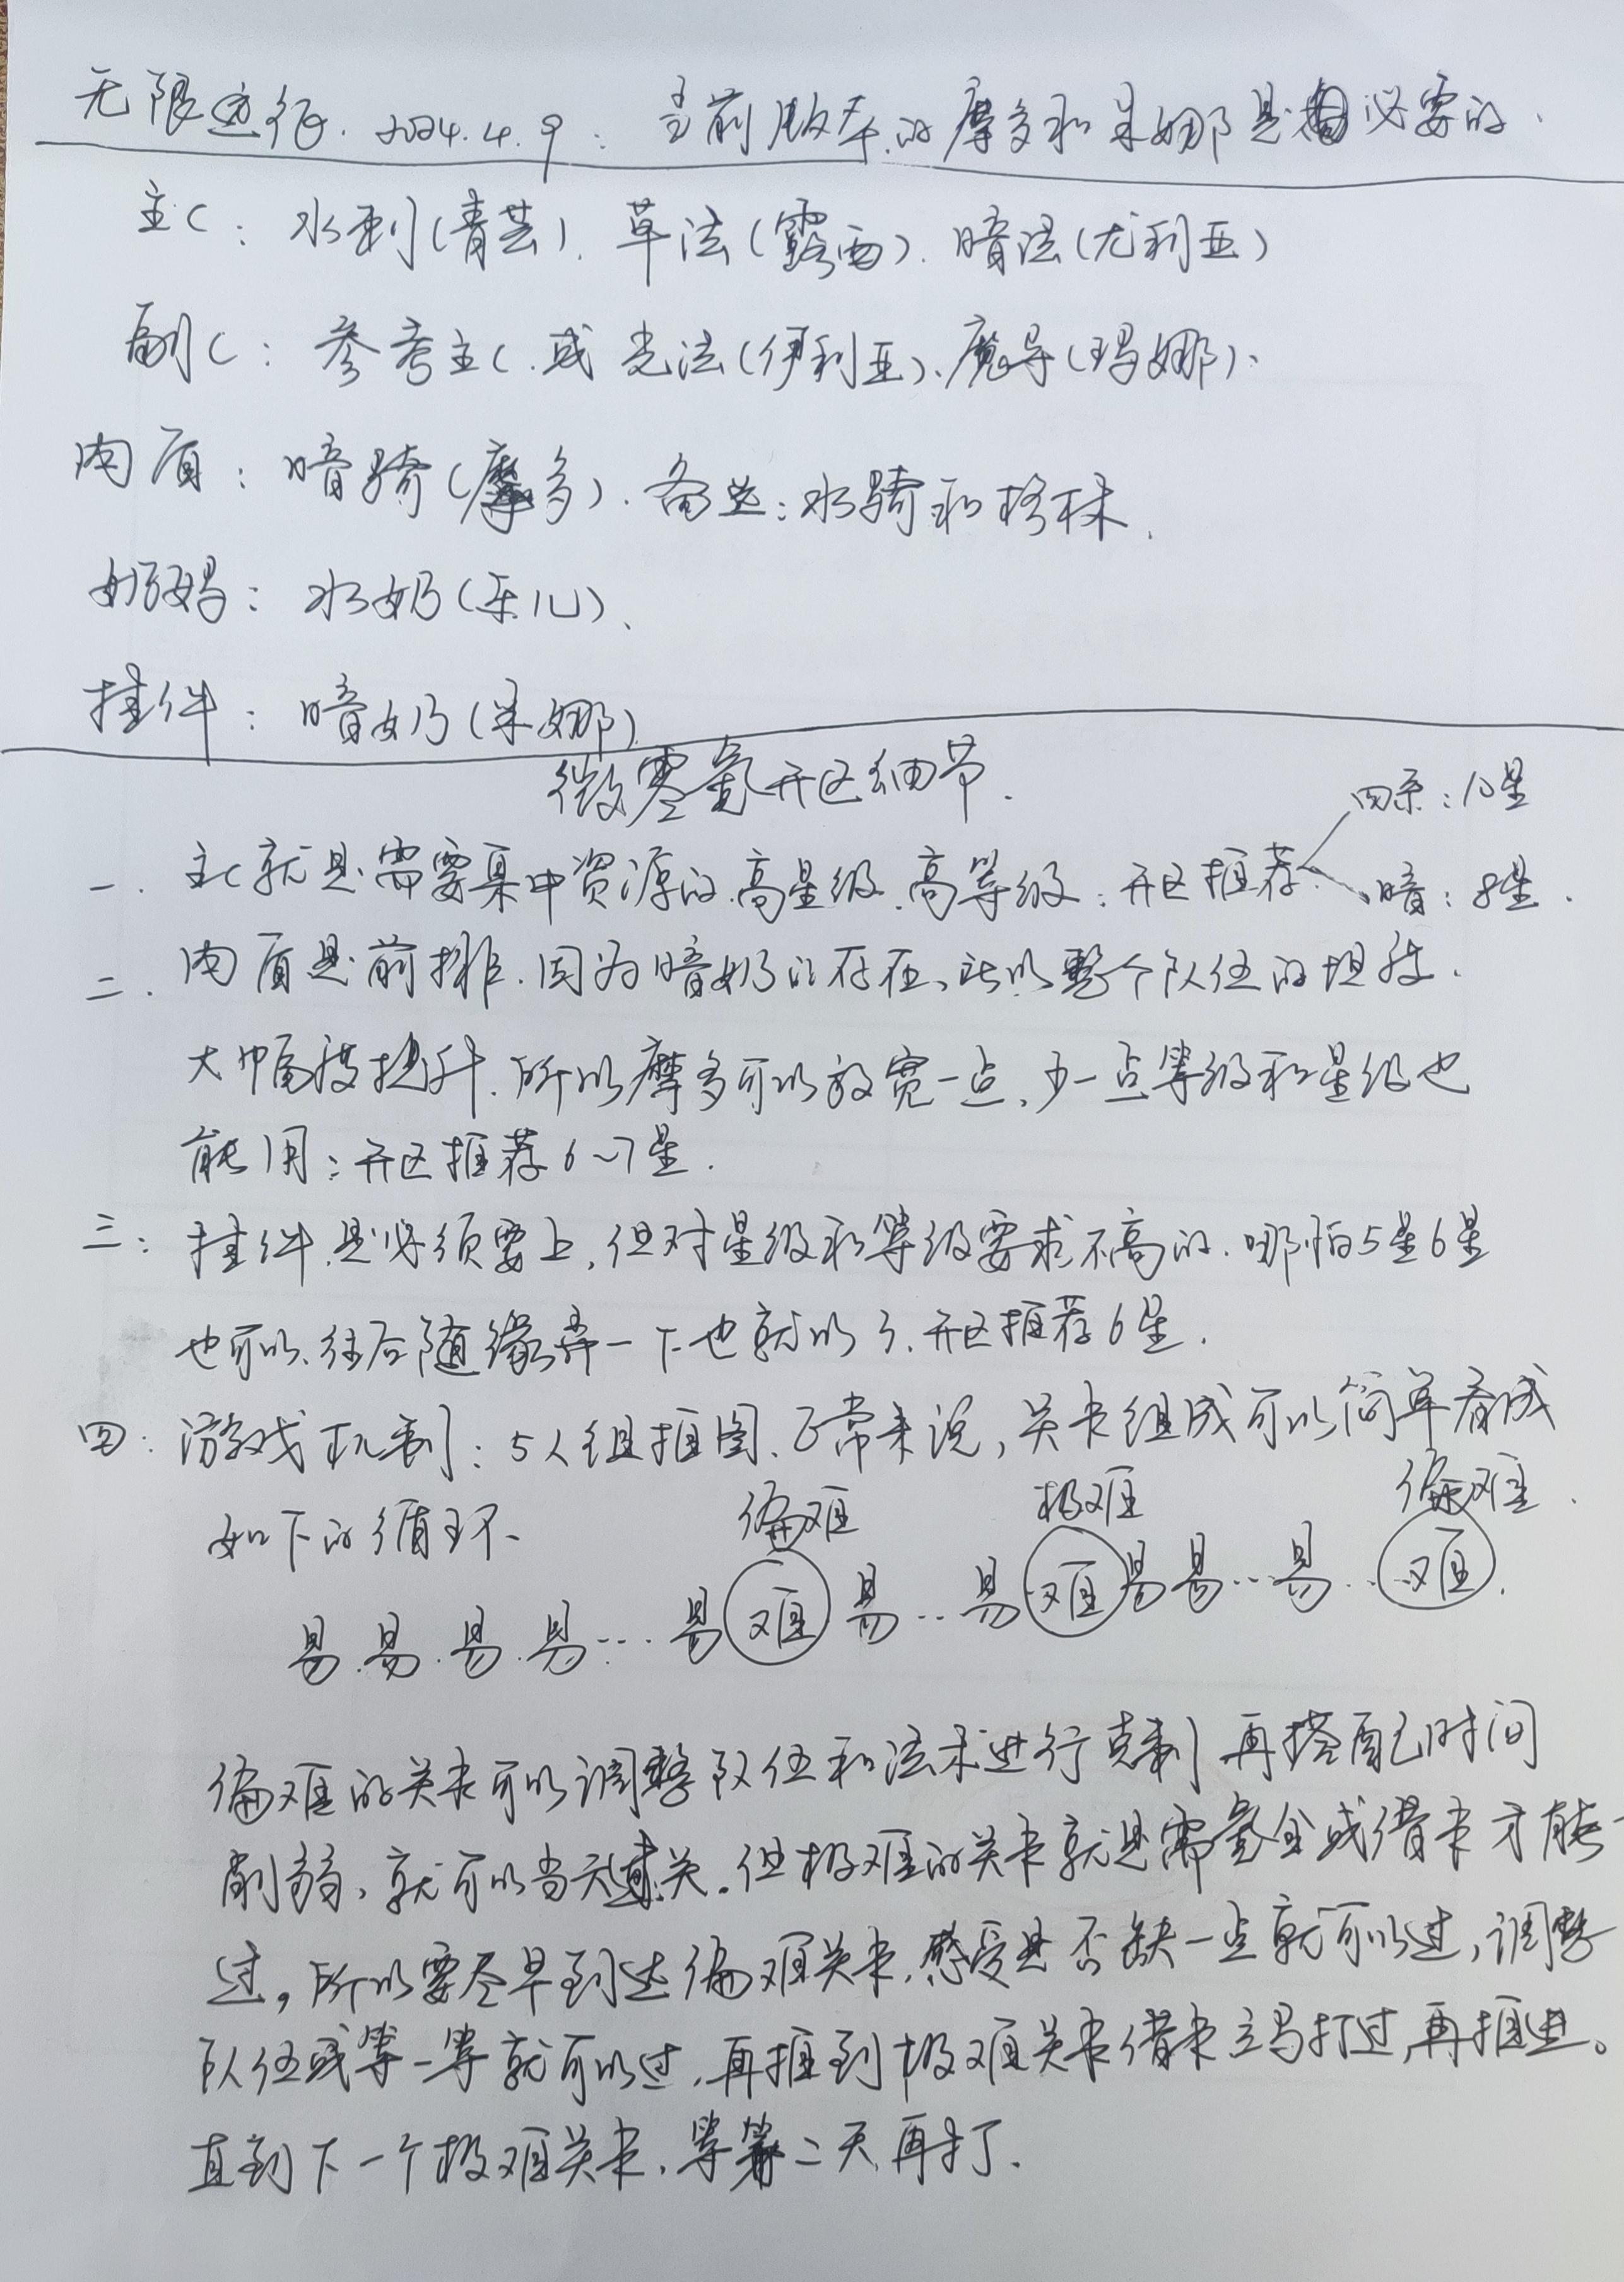 无限远征. 2024.4.9: 当前版本的摩多和米娜是必要的.
主C: 水刺(青芸). 草法(露西). 暗法(尤利亚)
副C: 参考主C.或光法(伊利亚)、魔导(玛娜).
肉盾: 暗骑(摩多). 备选: 水骑和格林.
奶妈: 水奶(乐儿).
挂件: 暗奶(米娜)
微零氪开区细节.
四系: 10星
一. 主C就是需要集中资源的.高星级.高等级: 开区推荐
暗: 8星.
二. 肉盾是前排.因为暗奶的存在,所以整个队伍的坦度.
大幅度提升.所以摩多可以放宽一点,少一点等级和星级也
能用: 开区推荐6~7星.
三: 挂件.是必须要上,但对星级和等级要求不高的.哪怕5星6星
也可以.往后随缘弄一下也就可以了.开区推荐6星.
四: 游戏机制: 5人组推图.正常来说,关卡组成可以简单看成
如下的循环、
偏难 极难 偏难.
易.易.易.易...易 难 易..易 难 易易..易..难.
偏难的关卡可以调整队伍和法术进行克制 再搭配时间
削弱,就可以当天过关.但极难的关卡就是需氪金或借卡才能
过,所以要尽早到达偏难关卡.感受是否缺一点就可以过,调整
队伍或等一等就可以过,再推到极难关卡借卡立马打过,再推进。
直到下一个极难关卡,等第二天再打.